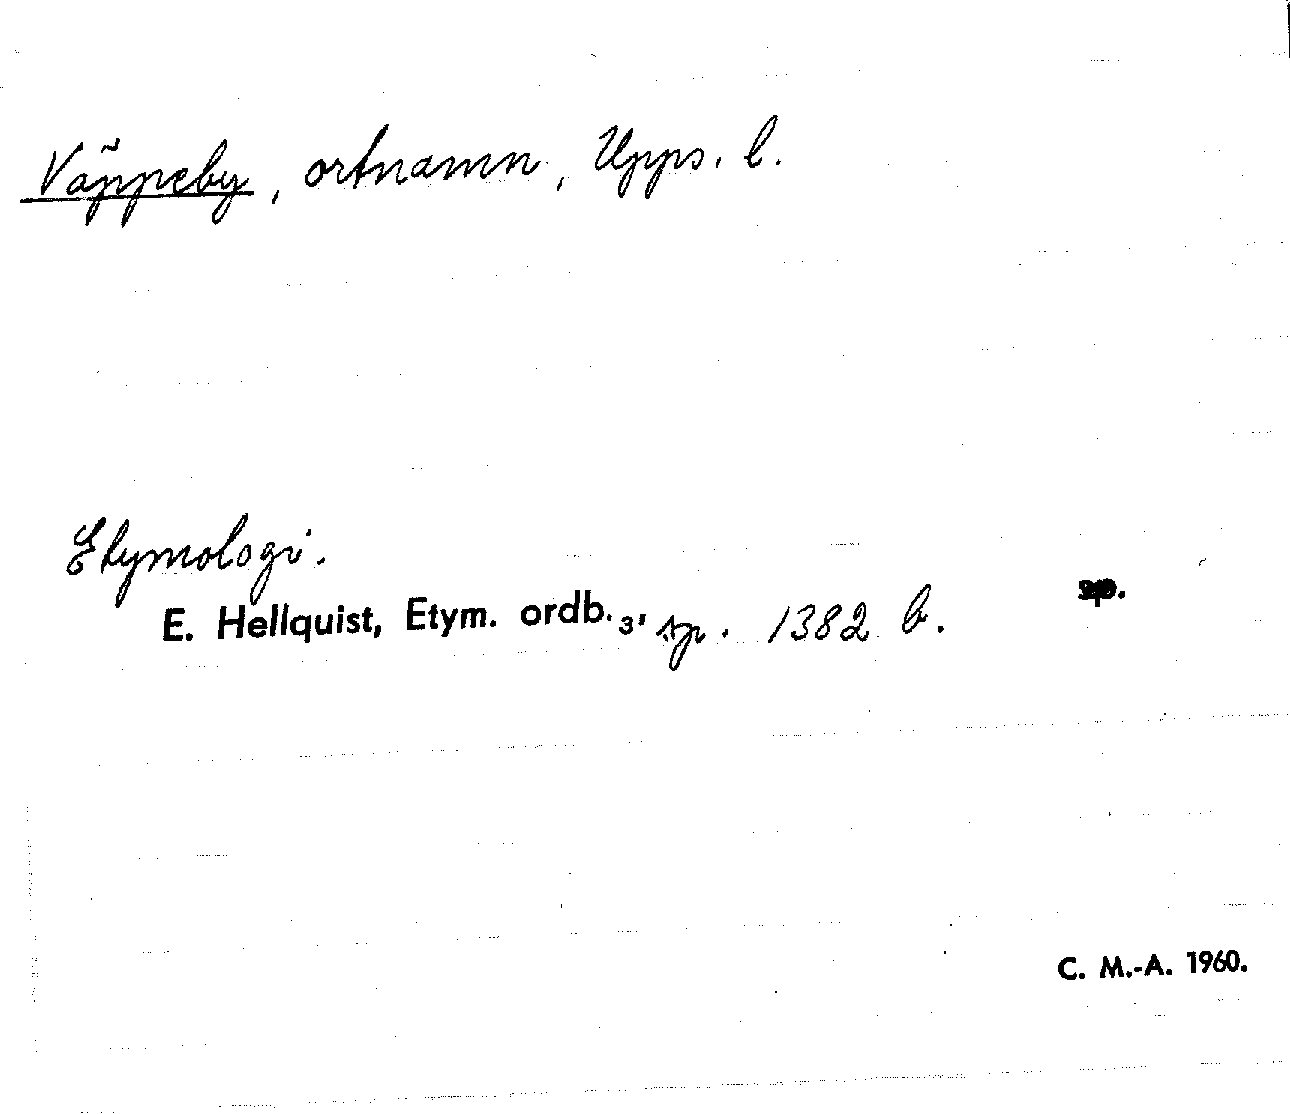 Väppeby, ortnamn, Upps. l.
Etymologi.
E. Hellquist, Etym. ordb. 3, sp. 1382 b. sp.
C. M.-A. 1960.